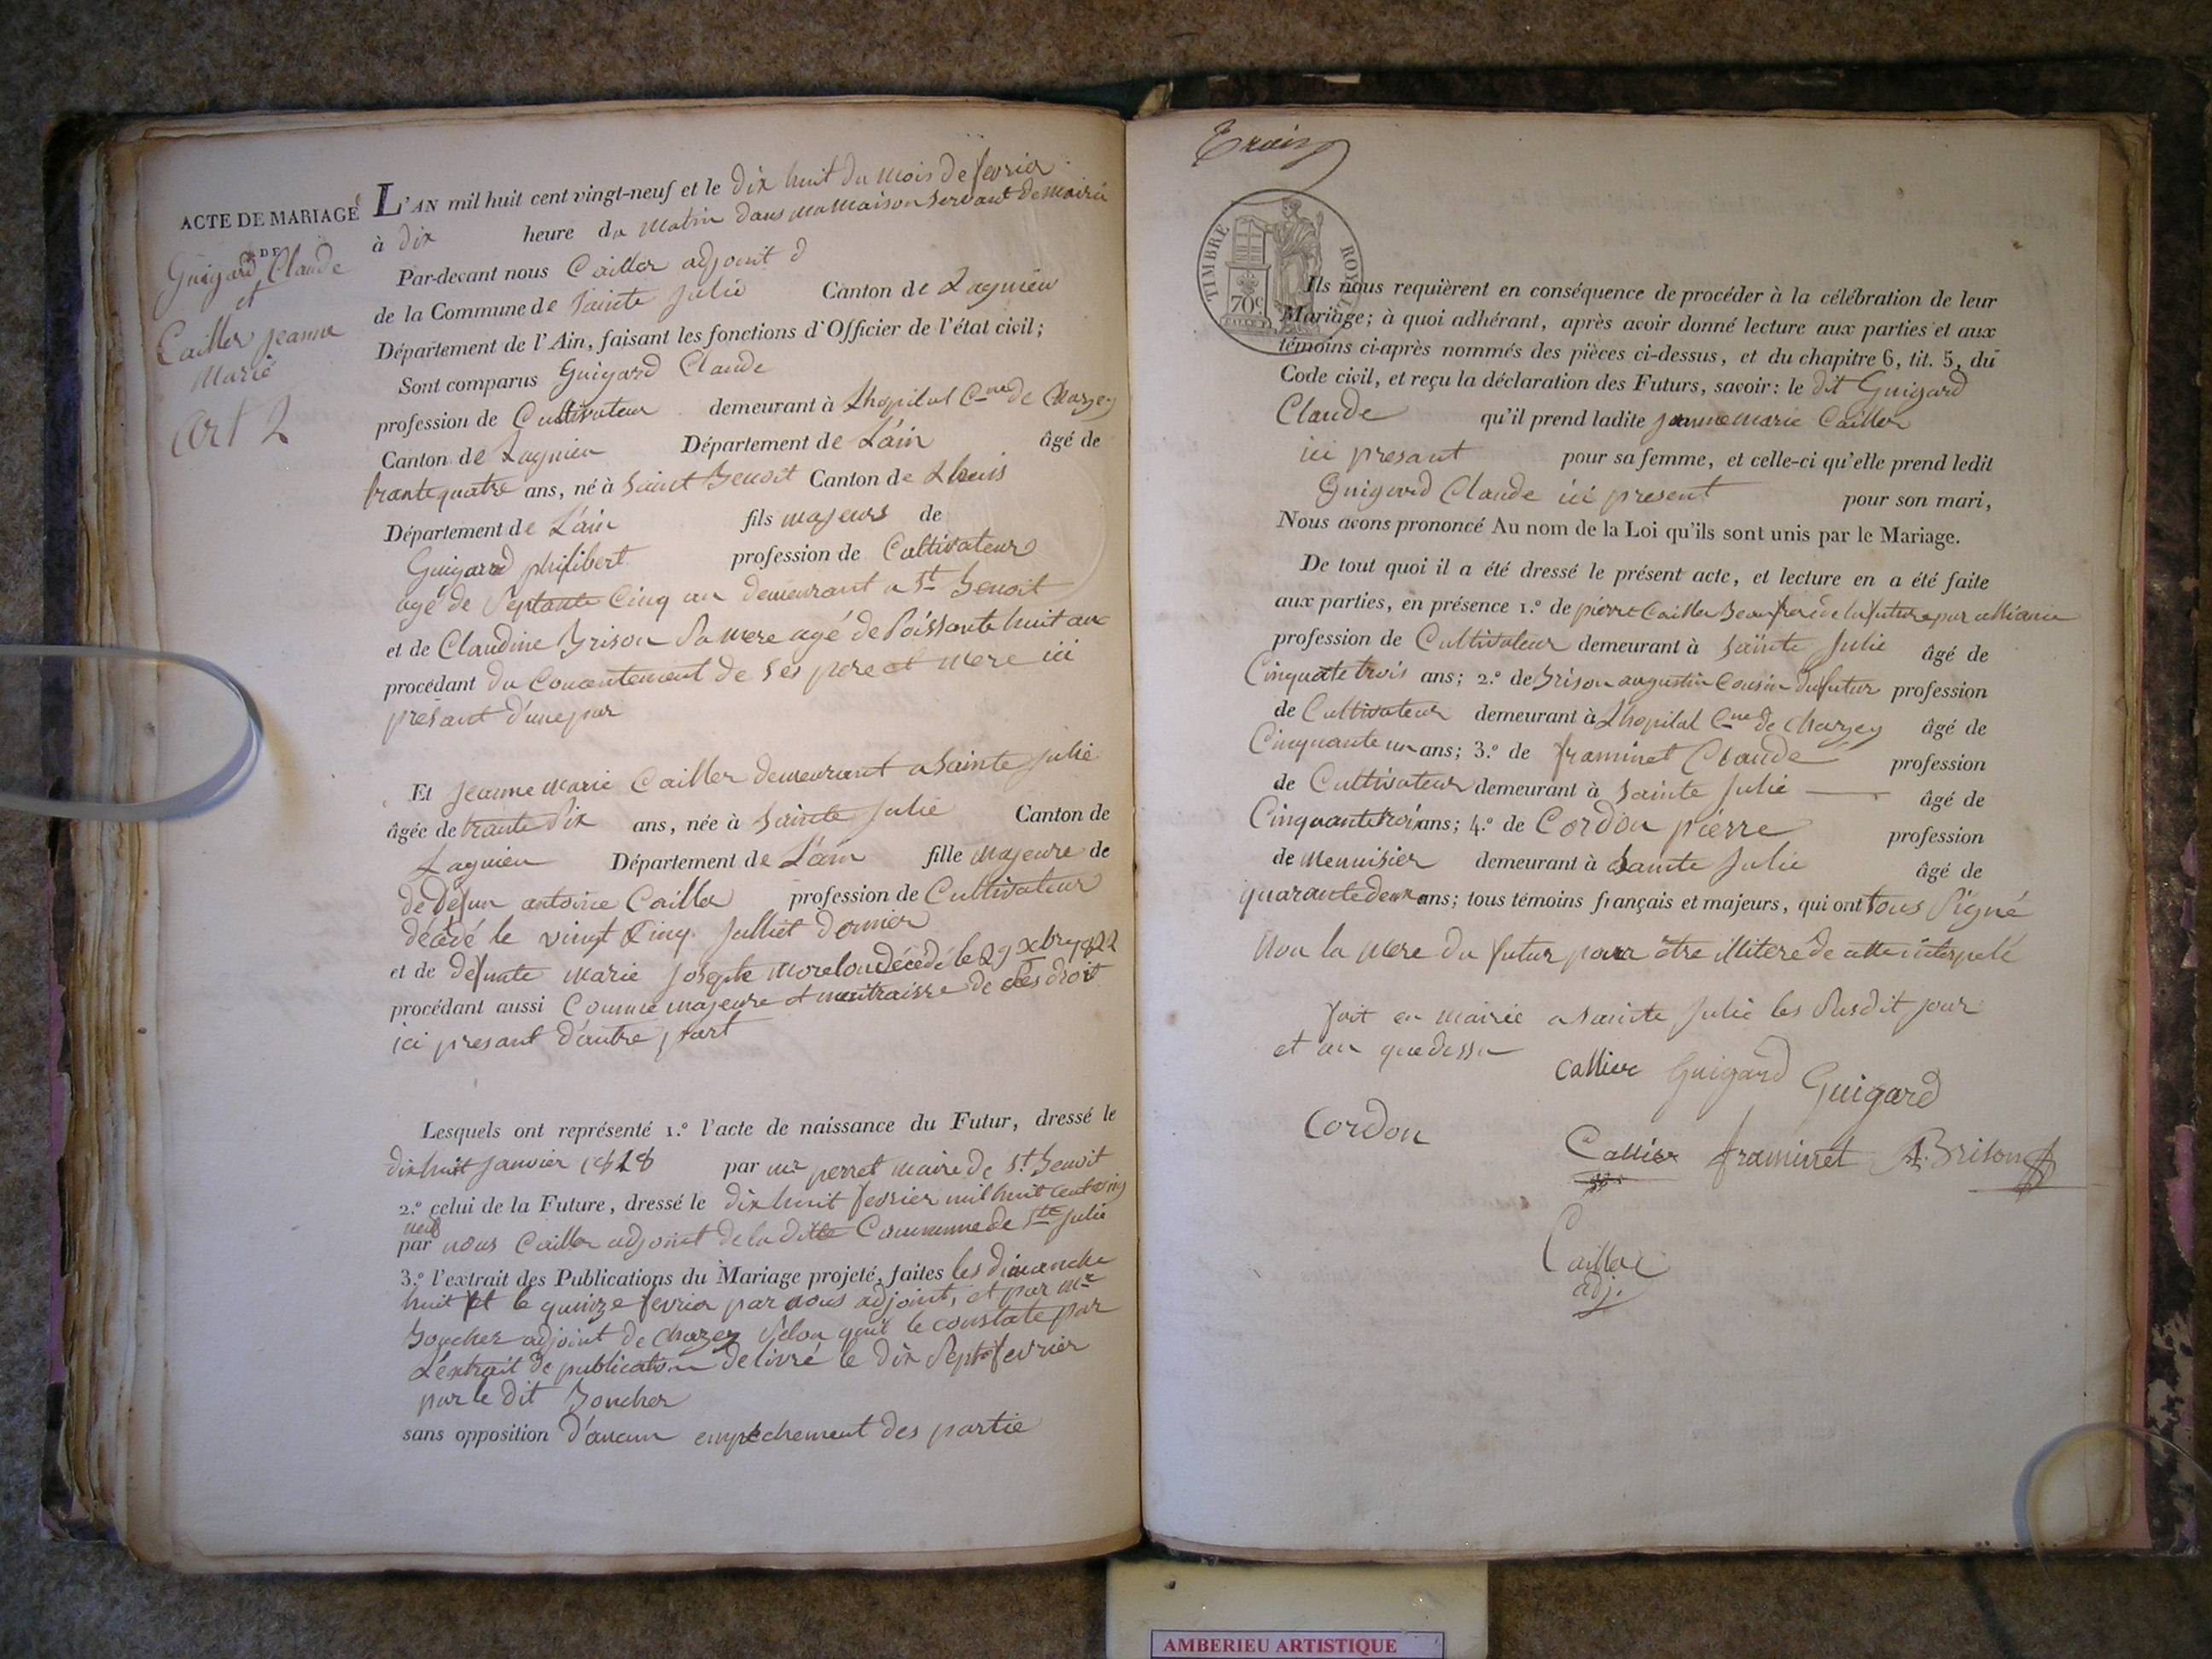 ACTE DE MARIAGE
DE
Guigard Claude
et
Cailler jeanne
Marie
Art 2
L'AN mil huit cent vingt-neuf et le dix huit du mois de fevrier
à dix heure du matin dans ma maison servant de mairie
Par-devant nous Cailler adjoint d
de la Commune de Sainte Julie Canton de Lagnieu
Département de l'Ain, faisant les fonctions d'Officier de l'état civil;
Sont comparus Guigard Claude
profession de Cultivateur demeurant à Lhopital Cne de Chazey
Canton de Lagnieu Département de L'ain âgé de
trante quatre ans, né à Saint Benoit Canton de Lhuis
Département de L'ain fils majeurs de
Guigard philibert profession de Cultivateur
agé de Septante Cinq an demeurant a St Benoit
et de Claudine Brison Sa mere agé de Soissante huit an
procédant du Concentement de Ses pere et mere ici
présant d'une par
Et Jeanne Marie Cailler demeurant a Sainte Julie
âgée de trante Six ans, née à Sainte Julie Canton de
Lagnieu Département de L'ain fille majeure de
de defun antoine Cailler profession de Cultivateur
décédé le vingt Cinq Julliet dernier
et de defunte Marie Josephe Morelon décédé le 29 xbre 1822
procédant aussi Comme majeure et maitraisse de Ses droit
ici presant d'autre part
Lesquels ont représenté 1.º l'acte de naissance du Futur, dressé le
dix huit Janvier 1828 par mr perret maire de St Benoit
2.º celui de la Future, dressé le dix huit fevrier mil huit cent vin
neuf
par nous Cailler adjoint de la dite Commune de Ste Julie
3.º l'extrait des Publications du Mariage projeté, faites les dimanche
huit et le quinze fevrier par nous adjoint, et par Mr
Boucher adjoint de Chazey Selon qu'il le constate par
L'extrait de publication délivré le dix Sept fevrier
par le dit Boucher
sans opposition d'aucun empechement des partie
Trois
TIMBRE ROYAL
70c
Ils nous requièrent en conséquence de procéder à la célébration de leur
Mariage; à quoi adhérant, après avoir donné lecture aux parties et aux
témoins ci-après nommés des pièces ci-dessus, et du chapitre 6, tit. 5, du
Code civil, et reçu la déclaration des Futurs, savoir: le dit Guigard
Claude qu'il prend ladite jeanne marie Cailler
ici presant pour sa femme, et celle-ci qu'elle prend ledit
Guigard Claude ici present pour son mari,
Nous avons prononcé Au nom de la Loi qu'ils sont unis par le Mariage.
De tout quoi il a été dressé le présent acte, et lecture en a été faite
aux parties, en présence 1.º de pierre Cailler Beau frere de la future par alliance
profession de Cultivateur demeurant à Sainte Julie âgé de
Cinquate trois ans; 2.º de Brison augustin Cousin du futur profession
de Cultivateur demeurant à Lhopital Cne de Chazey âgé de
Cinquante un ans; 3.º de framinet Claude profession
de Cultivateur demeurant à Sainte Julie âgé de
Cinquante trois ans; 4.º de Cordon pierre profession
de Menuisier demeurant à Sainte Julie âgé de
quarante deux ans; tous témoins français et majeurs, qui ont tous Signé
Non la mere du futur pour être illiteré de cette interpelé
fait en mairie a Sainte Julie les Susdit jour
et an que dessu
Callier Guigard Guigard
Cordon
Callier framinet A. Brison
Cailler
adj.
AMBERIEU ARTISTIQUE